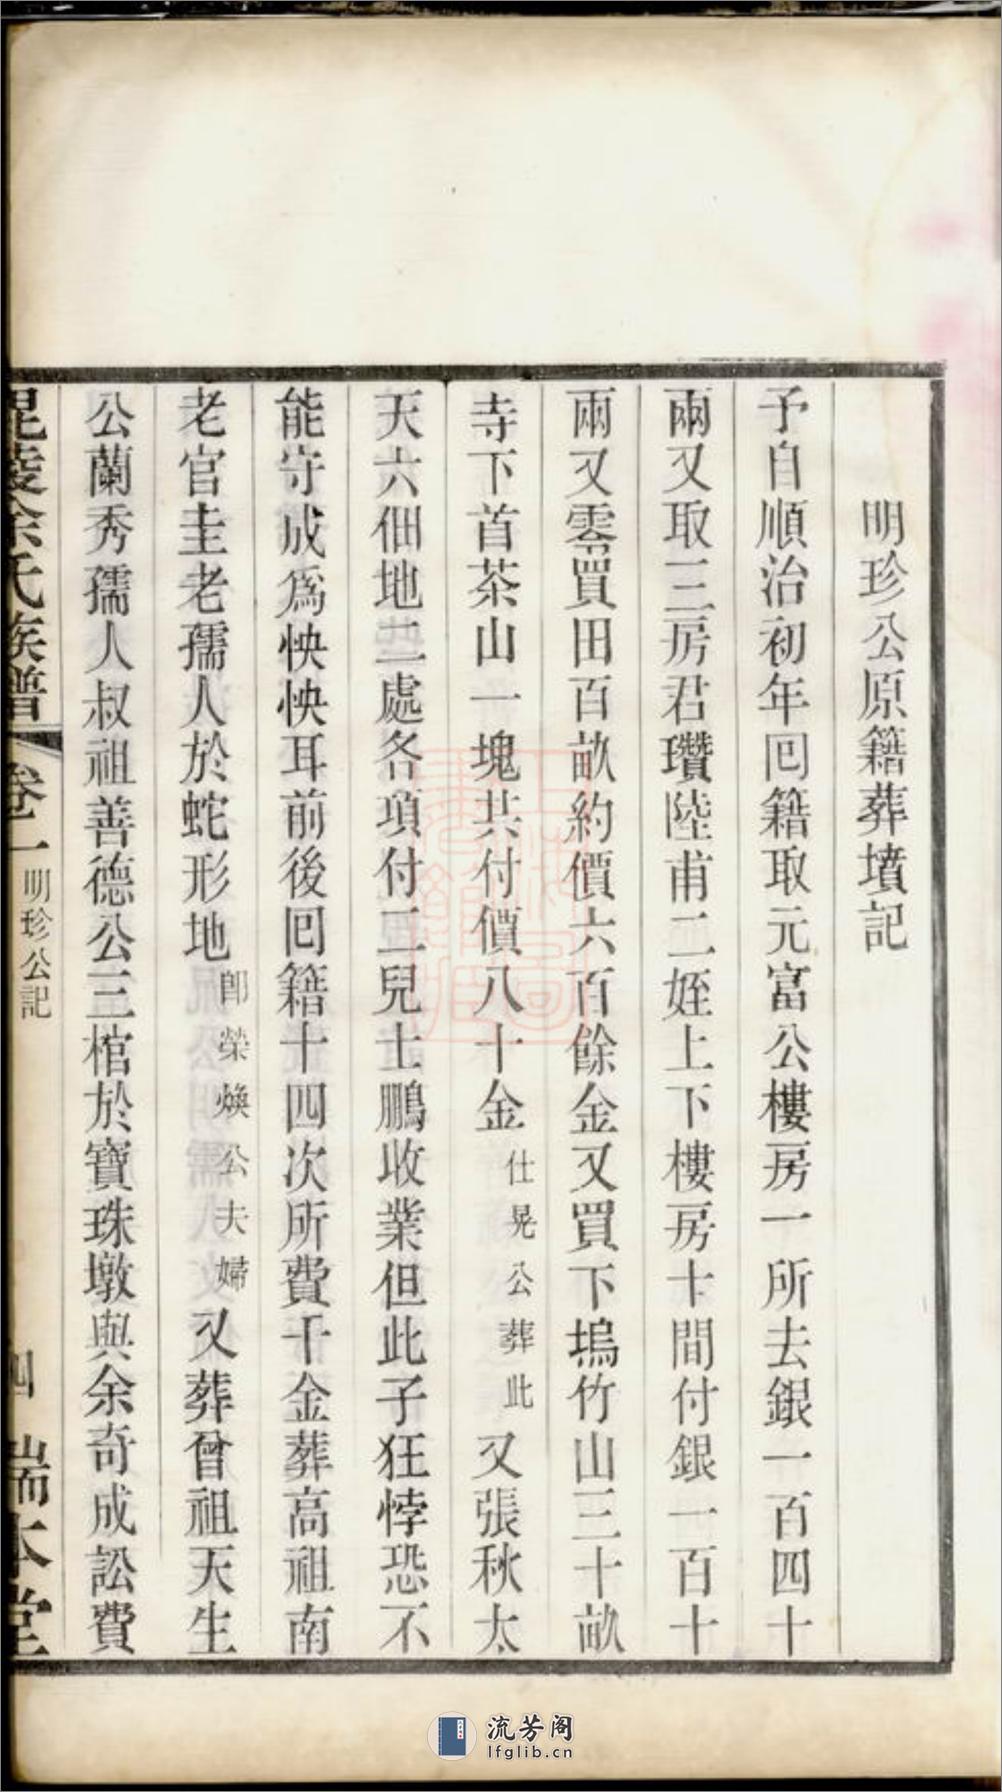 明珍公原籍葬墳記
予自順治初年回籍取元富公樓房一所去銀一百四十
兩又取三房君瓚陸甫二姪上下樓房十間付銀一百十
兩又零買田百畝約價六百餘金又買下塢竹山三十畝
寺下首茶山一塊共付價八十金仕晃公葬此又張秋太
天六佃地二處各項付二兒士鵬收業但此子狂悖恐不
能守成爲怏怏耳前後回籍十四次所費千金葬高祖南
老官圭老孺人於蛇形地卽榮煥公夫婦又葬曾祖天生
公蘭秀孺人叔祖善德公三棺於寶珠墩與余奇成訟費
毘陵余氏族譜 卷一 明珍公記 四 瑞本堂
流芳阁
lfglib.cn